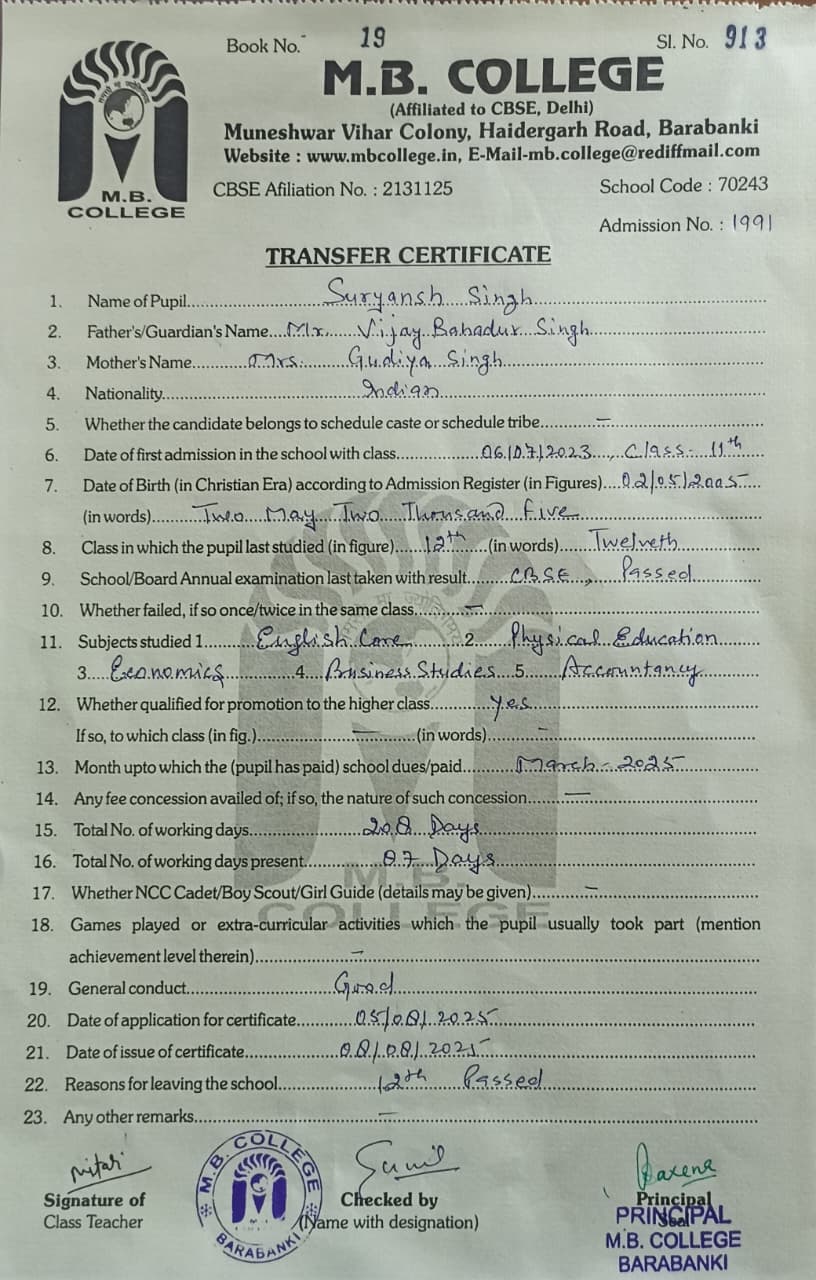 Book No. 19 Sl. No. 913
M.B. COLLEGE
(Affiliated to CBSE, Delhi)
Muneshwar Vihar Colony, Haidergarh Road, Barabanki
Website : www.mbcollege.in, E-Mail-mb.college@rediffmail.com
M.B.
COLLEGE
CBSE Afiliation No. : 2131125 School Code : 70243
Admission No. : 1991
TRANSFER CERTIFICATE
1. Name of Pupil Suryansh Singh
2. Father's/Guardian's Name Mr. Vijay Bahadur Singh
3. Mother's Name Mrs. Gudiya Singh
4. Nationality Indian
5. Whether the candidate belongs to schedule caste or schedule tribe —
6. Date of first admission in the school with class 06/07/2023, Class- 11th
7. Date of Birth (in Christian Era) according to Admission Register (in Figures) 02/05/2005
(in words) Two May Two Thousand Five
8. Class in which the pupil last studied (in figure) 12th (in words) Twelveth
9. School/Board Annual examination last taken with result CBSE, Passed
10. Whether failed, if so once/twice in the same class —
11. Subjects studied 1 English Core 2 Physical Education
3 Economics 4 Business Studies 5 Accountancy
12. Whether qualified for promotion to the higher class Yes
If so, to which class (in fig.) — (in words) —
13. Month upto which the (pupil has paid) school dues/paid March - 2025
14. Any fee concession availed of; if so, the nature of such concession —
15. Total No. of working days 208 Days
16. Total No. of working days present 87 Days
17. Whether NCC Cadet/Boy Scout/Girl Guide (details may be given) —
18. Games played or extra-curricular activities which the pupil usually took part (mention
achievement level therein) —
19. General conduct Good
20. Date of application for certificate 05/08/2025
21. Date of issue of certificate 08/08/2025
22. Reasons for leaving the school 12th Passed
23. Any other remarks —
M.B.
COLLEGE
M.B. COLLEGE
BARABANKI
Saxena
Signature of Checked by Principal
Class Teacher (Name with designation) Seal
PRINCIPAL
M.B. COLLEGE
BARABANKI